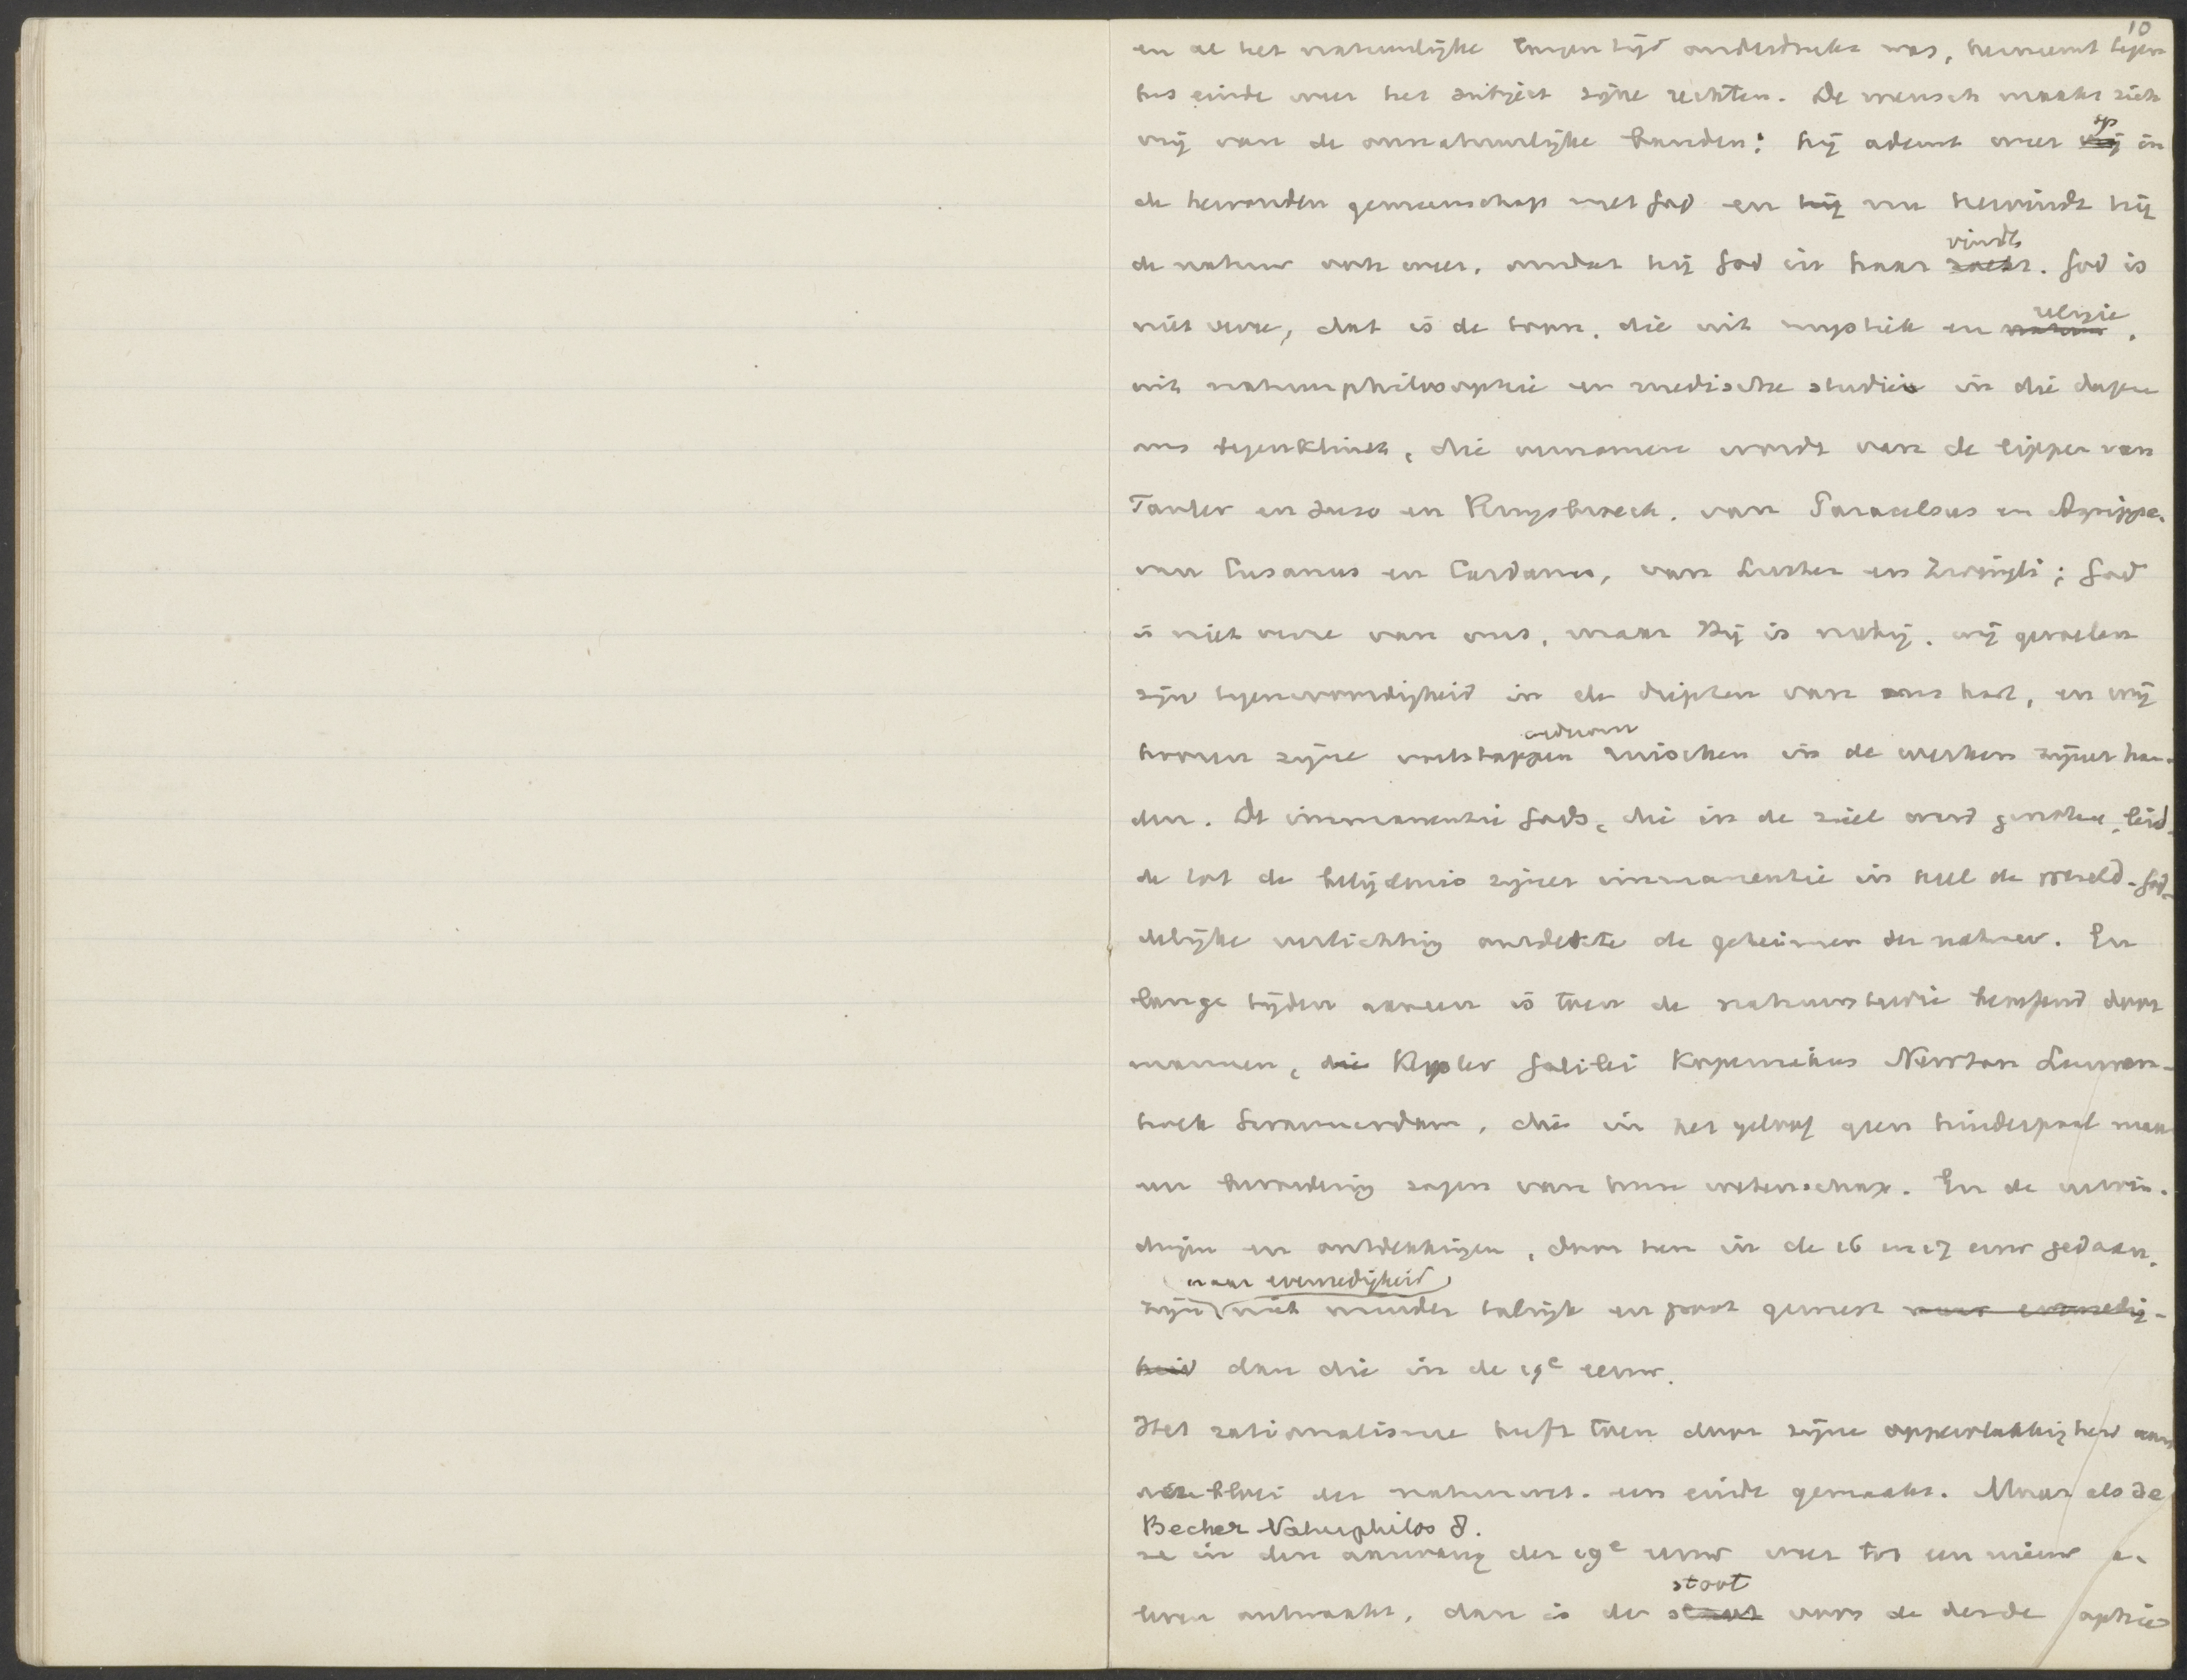 10
en al het natuurlijke langen tijd onderdrukt was, herneemt tegen
het einde weer het subject zijne rechten. De mensch maakt zich
vrij van de onnatuurlijke banden: hij ademt weer op in
de hervonden gemeenschap met God en hij nu hervindt hij
de natuur ook weer, omdat hij God in haar vindt zoekt. God is
niet verre, dat is de toon, die uit mystiek en religie natuur,
uit natuurphilosophie en medische studiën in die dagen
ons tegenklinkt, die vernomen wordt van de lippen van
Tauler en Suso en Ruysbroeck, van Paracelsus en Agrippa,
van Cusanus en Cardanus, van Luther en Zwingli; God
is niet verre van ons, maar Hij is nabij, wij gevoelen
zijn tegenwoordigheid in de diepten van ons hart, en wij
hooren zijne voetstappen ruischen in de werken zijner han-
den. De immanentie Gods, die in de ziel werd genoten, leid-
de tot de belijdenis zijner immanentie in heel de wereld. God-
delijke verlichting ontdekte de geheimen der natuur. En
lange tijden aaneen is toen de natuurstudie beoefend door
mannen, die Kepler Galilei Kopernikus Newton Leeuwen-
hoek Swammerdam, die in het geloof geen hinderpaal maar
een bevordering zagen van hun wetenschap. En de uitvin-
dingen en ontdekkingen, door hen in de 16 en 17 eeuw gedaan,
naar evenredigheid
zijn niet minder talrijk en groot geweest naar evenredig-
heid dan die in de 19e eeuw.
Het rationalisme heeft toen door zijne oppervlakkigheid aan
bloei der natuurwet. een einde gemaakt. Maar als de
Becher Naturphilos 8.
ze in den aanvang der 19e eeuw weer tot een nieuw
leven ontwaakt, dan is de stoot voor de derde